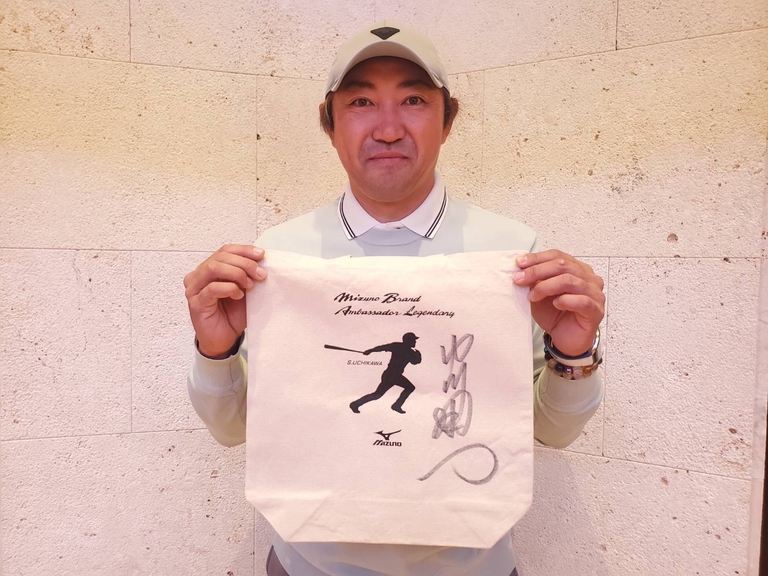 Mizuno Brand
Ambassador Legendary
S.UCHIKAWA
Mizuno